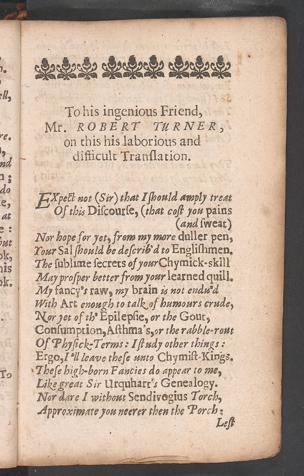 To his ingenious Friend,
Mr. ROBERT TURNER,
on this his laborious and
difficult Translation.
EXpect not (Sir) that I ſhould amply treat
Of this Diſcourſe, (that coſt you pains
(and ſweat)
Nor hope for yet, from my more duller pen,
Your Sal ſhould be deſcrib'd to Engliſhmen.
The ſublime ſecrets of your Chymick-skill
May proſper better from your learned quill.
My fancy's raw, my brain is not endu'd
With Art enough to talk of humours crude,
Nor yet of th' Epilepſie, or the Gout,
Conſumption, Aſthma's, or the rabble-rout
Of Phyſick-Terms: I ſtudy other things:
Ergo, I'll leave theſe unto Chymiſt-Kings.
Theſe high-born Fancies do appear to me,
Like great Sir Urquhart's Genealogy.
Nor dare I without Sendivogius Torch,
Approximate you neerer then the Porch:
Leſt
n.
ell,
re.
n,
nd
n;
do
e,
at
e:
but
ok,
his
ok.
To